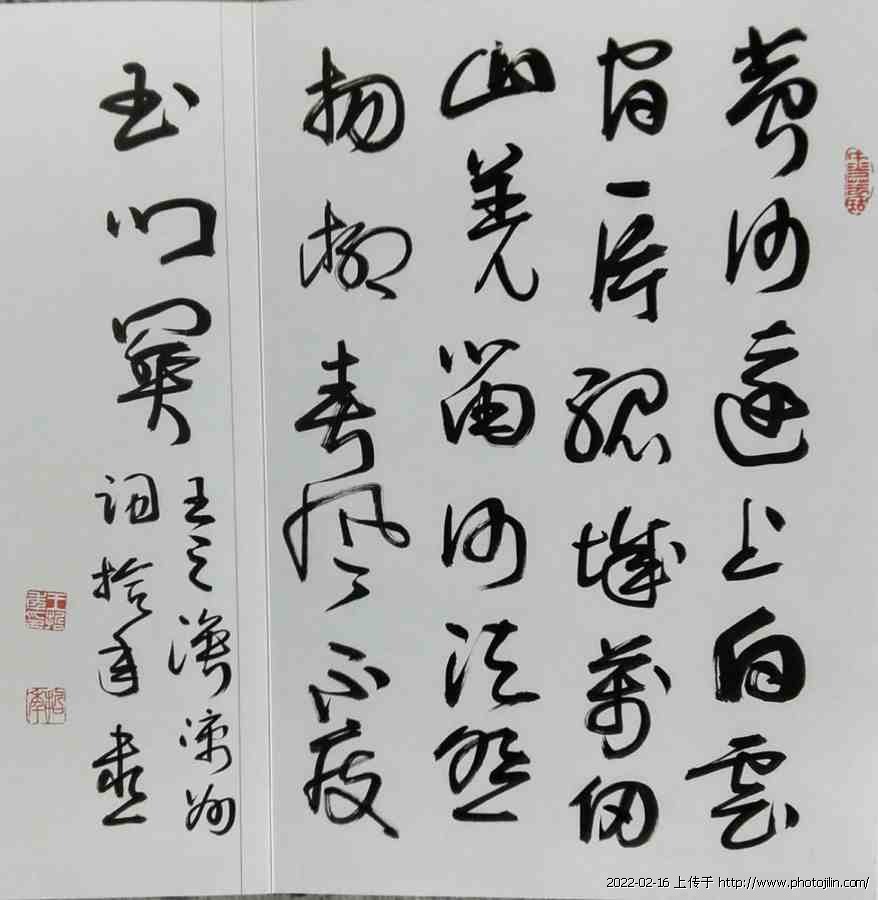 黄河遠上白雲
间一片孤城萬仞
山羌笛何须怨
杨柳春風不度
玉门関
王之渙凉州
词拾年書
2022-02-16 上传于 http://www.photojilin.com/